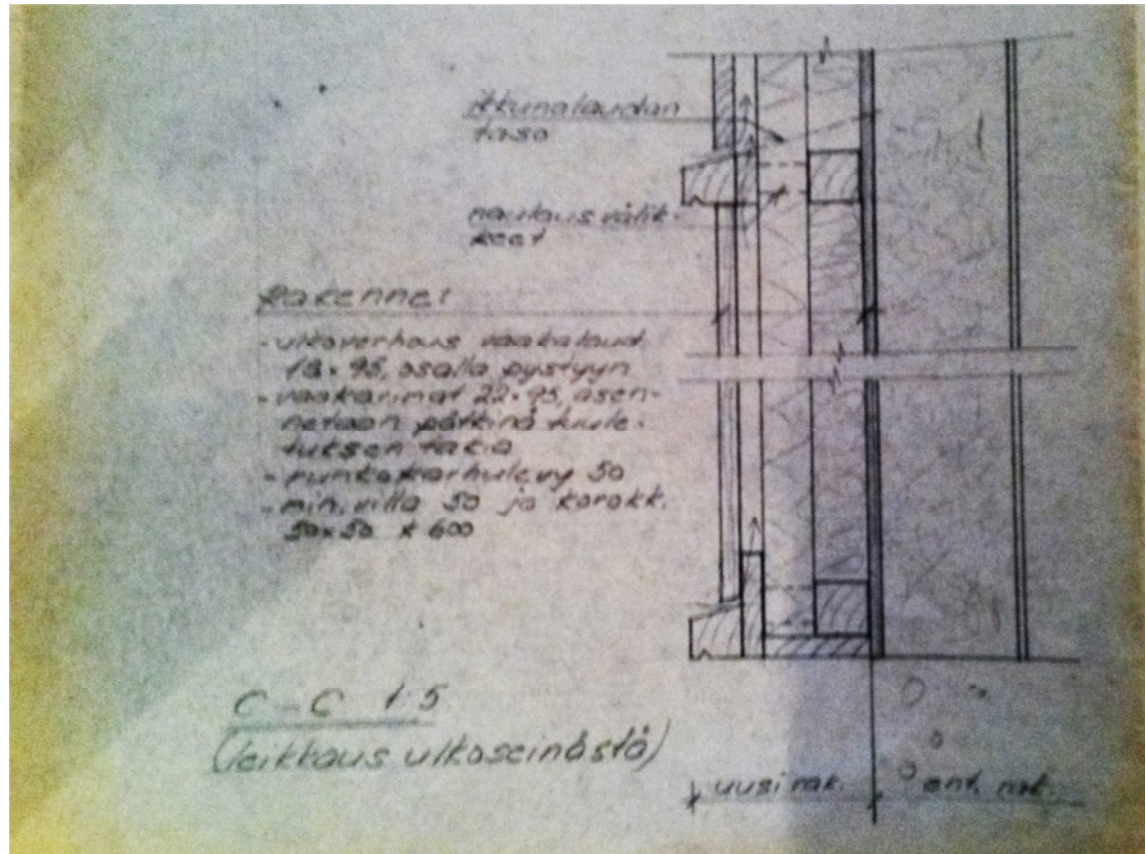 ikkunalaudan
taso
naulausvälik-
keet
Rakenne:
- ulkoverhous vaakalaud.
18×95, osalla pystyyn
- vaakarimat 22×95, asen-
netaan pätkinä tuule-
tuksen takia
- runkokarhulevy 50
- min.villa 50 ja korokk.
50×50 k 600
C - C 1:5
(leikkaus ulkoseinästä)
uusi rak.
ent. rak.